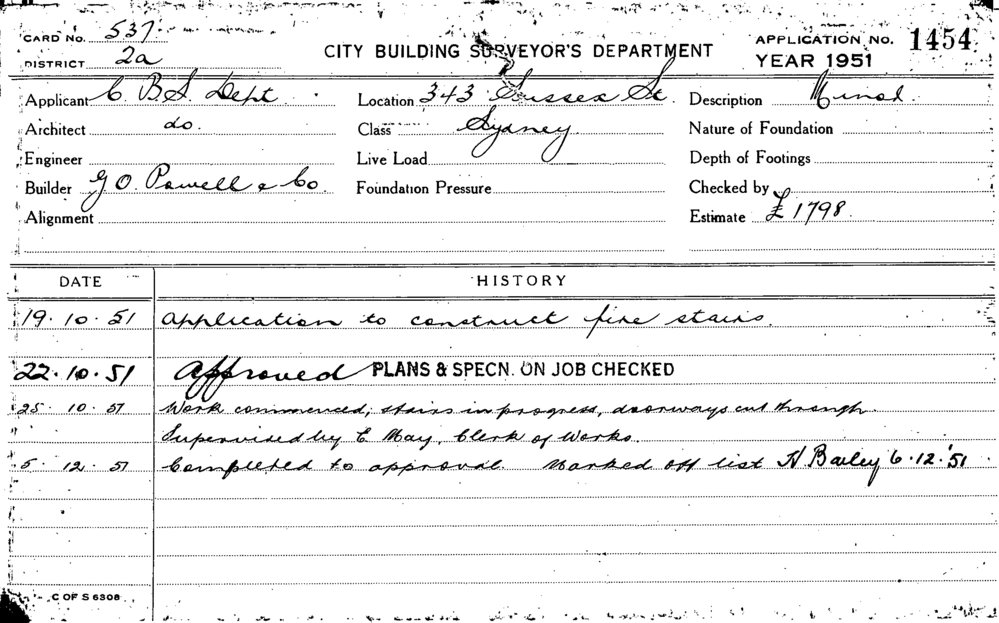 CARD NO. 537
DISTRICT 2a
CITY BUILDING SURVEYOR'S DEPARTMENT
APPLICATION NO. 1454
YEAR 1951
Applicant C B S Dept
Location 343 Sussex St.
Description Minor
Architect do.
Class Sydney
Nature of Foundation
Engineer
Live Load
Depth of Footings
Builder G O. Powell & Co
Foundation Pressure
Checked by
Alignment
Estimate £1798
DATE HISTORY
19.10.51 Application to construct fire stairs.
22.10.51 Approved PLANS & SPECN. ON JOB CHECKED
25.10.51 Work commenced, stairs in progress, doorways cut through.
" Supervised by E May, Clerk of Works.
5.12.51 Completed to approval. Marked off list H Bailey 6.12.51
C OF S 6308